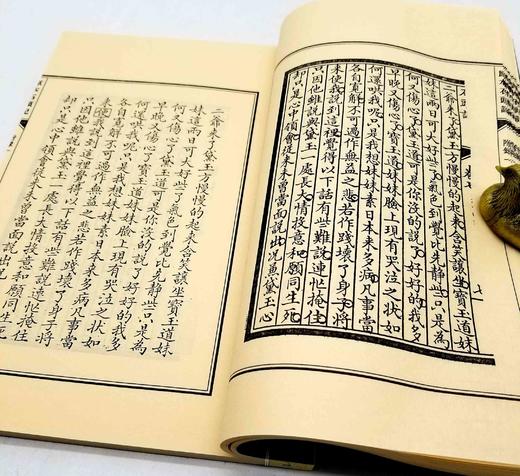 二爺來了黛玉方慢慢的起來含笑讓坐寶玉道妹
妹這兩日可大好些了氣色到覺比先靜些只是為
何又傷心了黛玉道可是你沒的說了好好的我多
早晚又傷心了寶玉道妹妹臉上現有哭泣之狀如
何還哄我呢只是我想妹妹素日本来多病凡事當
各自寬解不可過作無益之悲若作踐壞了身子將
来使我說到這裡覺得以下話有些難說連忙掩住
只因他雖說與黛玉一處長大情投意和願同生死
却只是心中領會從来未曾當面說出况黛玉心
二爺来了黛玉方慢慢的起来含笑讓坐寶玉道妹
妹這兩日可大好些了氣色到覺比先靜些只是為
何又傷心了黛玉道可是你沒的說了好好的我多
早晚又傷心了寶玉道妹妹臉上現有哭泣之狀如
何還哄我呢只是我想妹妹素日本来多病凡事當
各自寬解不可過作無益之悲若作踐壞了身子將
来使我說到這裡覺得以下話有些難說連忙掩住
只因他雖說與黛玉一處長大情投意和願同生死
却只是心中領會從来未曾當面說出况黛玉心